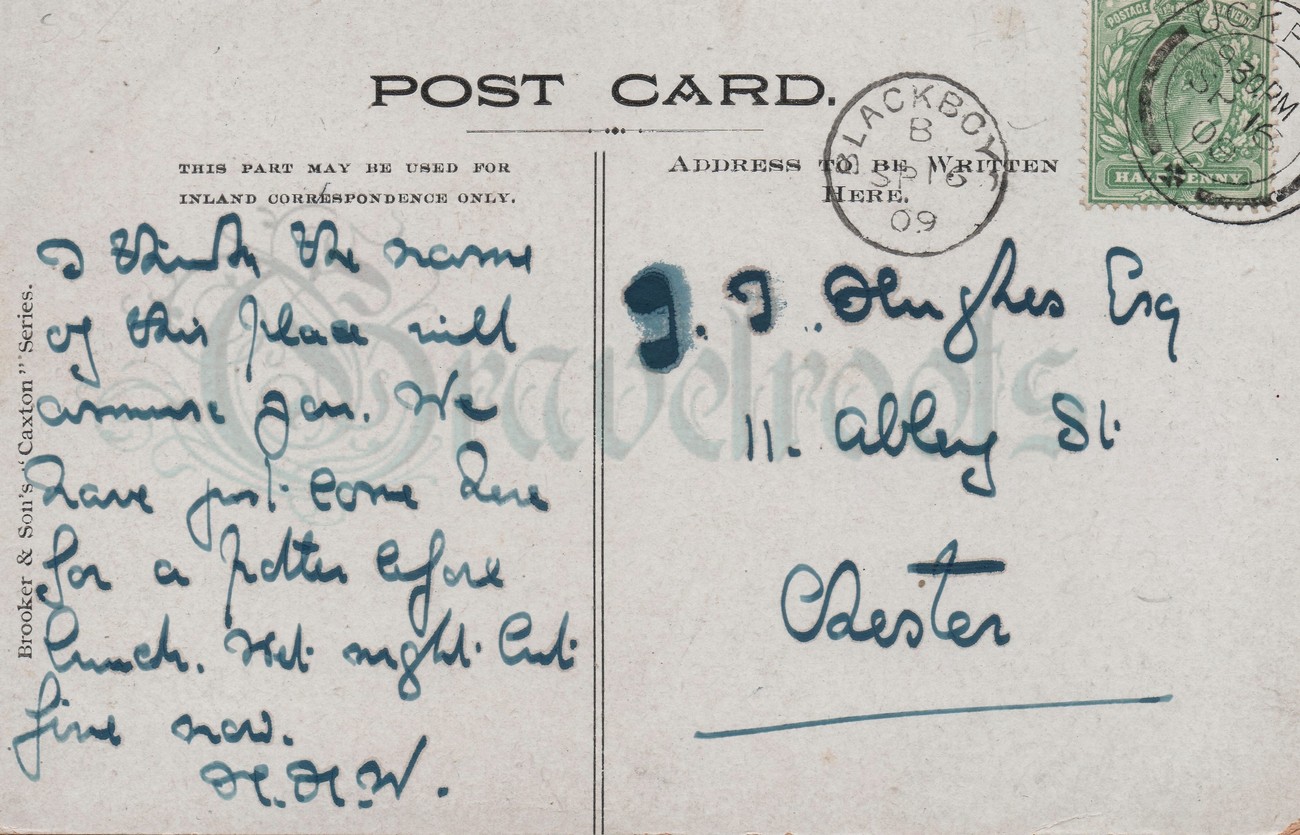 POST CARD.
THIS PART MAY BE USED FOR
INLAND CORRESPONDENCE ONLY.
ADDRESS TO BE WRITTEN
HERE.
BLACKBOYS
B
SP 16
09
POSTAGE
HALFPENNY
UCKF
9 30 PM
SP 16
09
Brooker & Son's "Caxton" Series.
I think the name
of this place will
amuse you. We
have just come here
for a potter before
lunch. Wet night but
fine now.
H.H.W.
J. T. Hughes Esq
11. Abbey St
Chester
Gravelroots